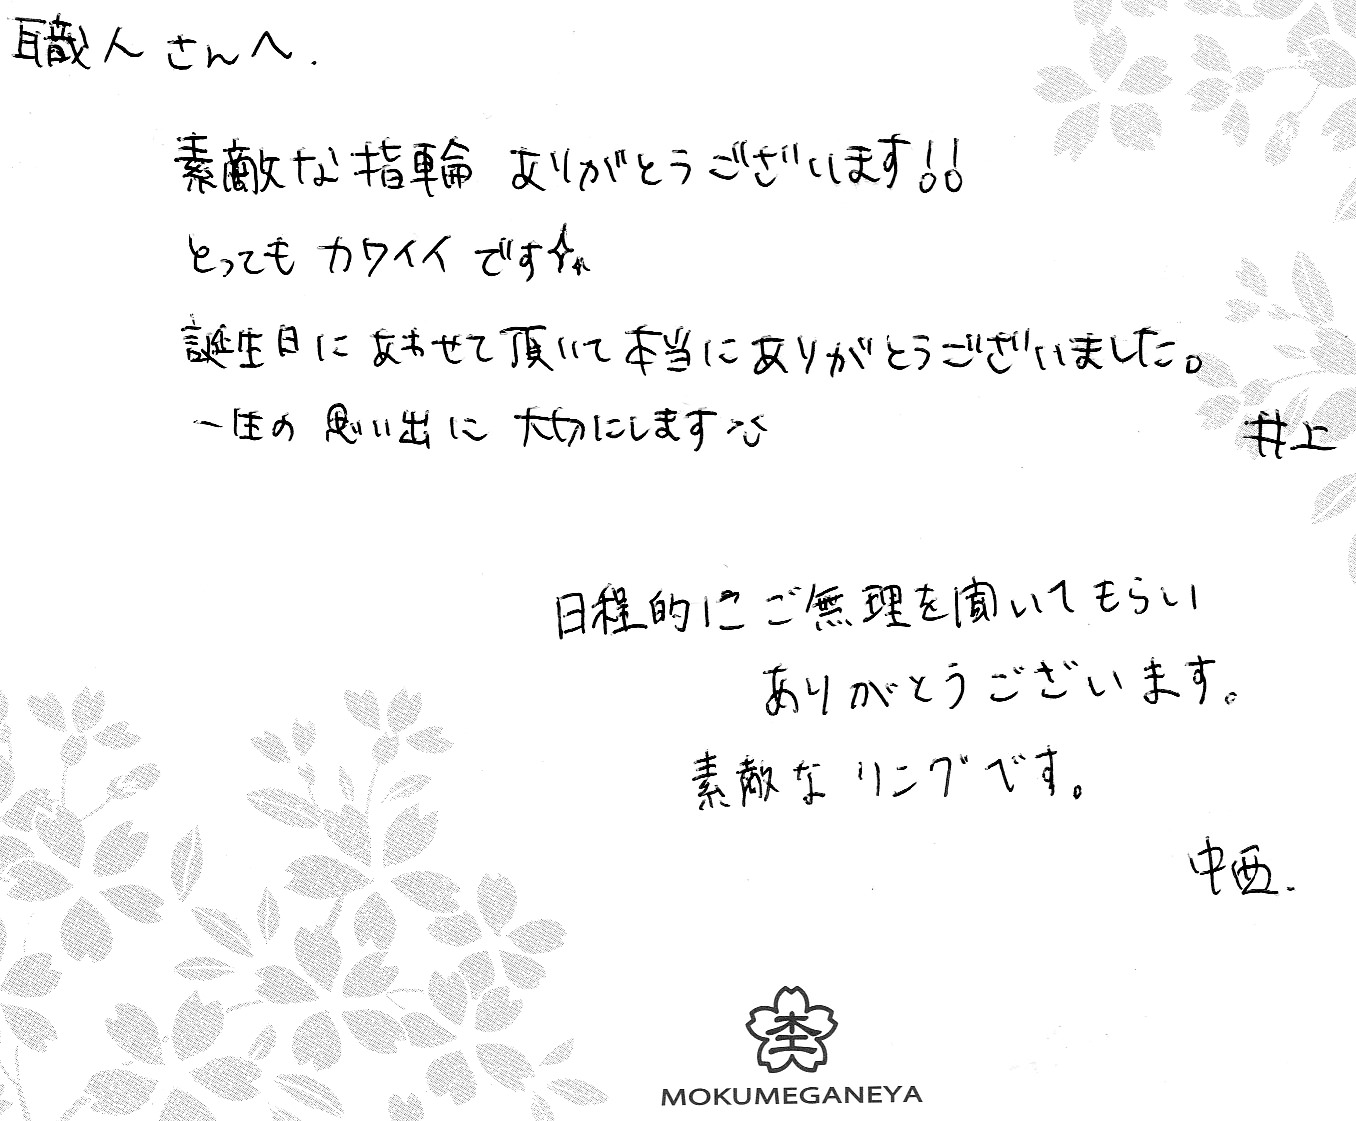 職人さんへ.
素敵な指輪 ありがとうございます!!
とっても カワイイ です
誕生日に あわせて 頂いて 本当に ありがとうございました。
一生の 思い出に 大切にします
井上
日程的にご無理を聞いてもらい
ありがとうございます。
素敵な リングです。
中西.
杢
MOKUMEGANEYA